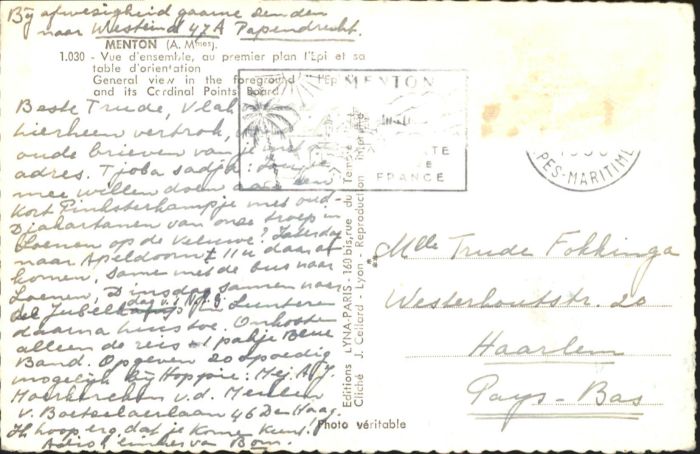 Bij afwezigheid gaarne zenden
naar Westeind 47A Papendrecht.
MENTON (A. Mmes)
1.030 - Vue d'ensemble, au premier plan l'Epi et sa
table d'orientation
General view in the foreground l'Epi
and its Cardinal Points Board
MENTON
FRANCE
PES-MARITIME
Beste Trude, Vlak
hierheen vertrok,
oude brieven van je met
adres. Tjoba sadja:
mee willen doen aan een
kort Pinksterkampje met oud-
Djakartanen van onze troep in
Loenen op de Veluwe? Zaterdag
naar Apeldoorn ± 11 u daar at
komen, samen met de bus naar
Loenen, Dinsdag samen naar
de Jubeldag v.h. N.J.G. Lunteren
daarna huis toe. Onkosten
alleen de reis + 1 pakje Blue
Band. Opgeven zo spoedig
mogelijk bij Hoppie: Mej. A.J.
v.d. Meulen
v. Boetselaerlaan 46 Den Haag.
Ik hoop erg, dat je komen kunt.
van Bom.
Editions LYNA-PARIS - 160 bis, rue du Temple
Cliché J. Cellard - Lyon - Reproduction interdite
Mlle Trude Fokkinga
Westerhoutstr. 20
Haarlem
Pays-Bas
Photo véritable